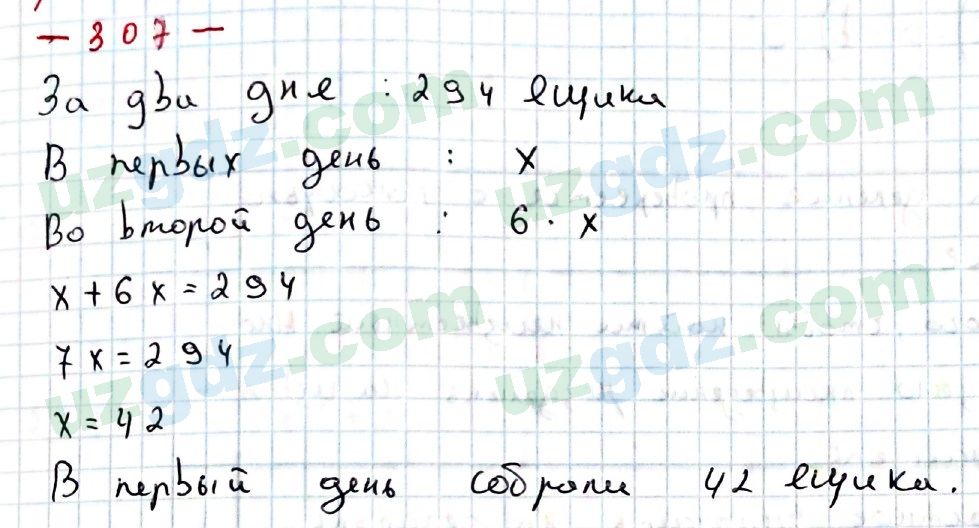 — 307 —
За два дня : 294 ящика
В первых день : x
Во второй день : 6 · x
x + 6x = 294
7x = 294
x = 42
В первый день собрали 42 ящика.
uzgdz.com uzgdz.com
uzgdz.com uzgdz.com